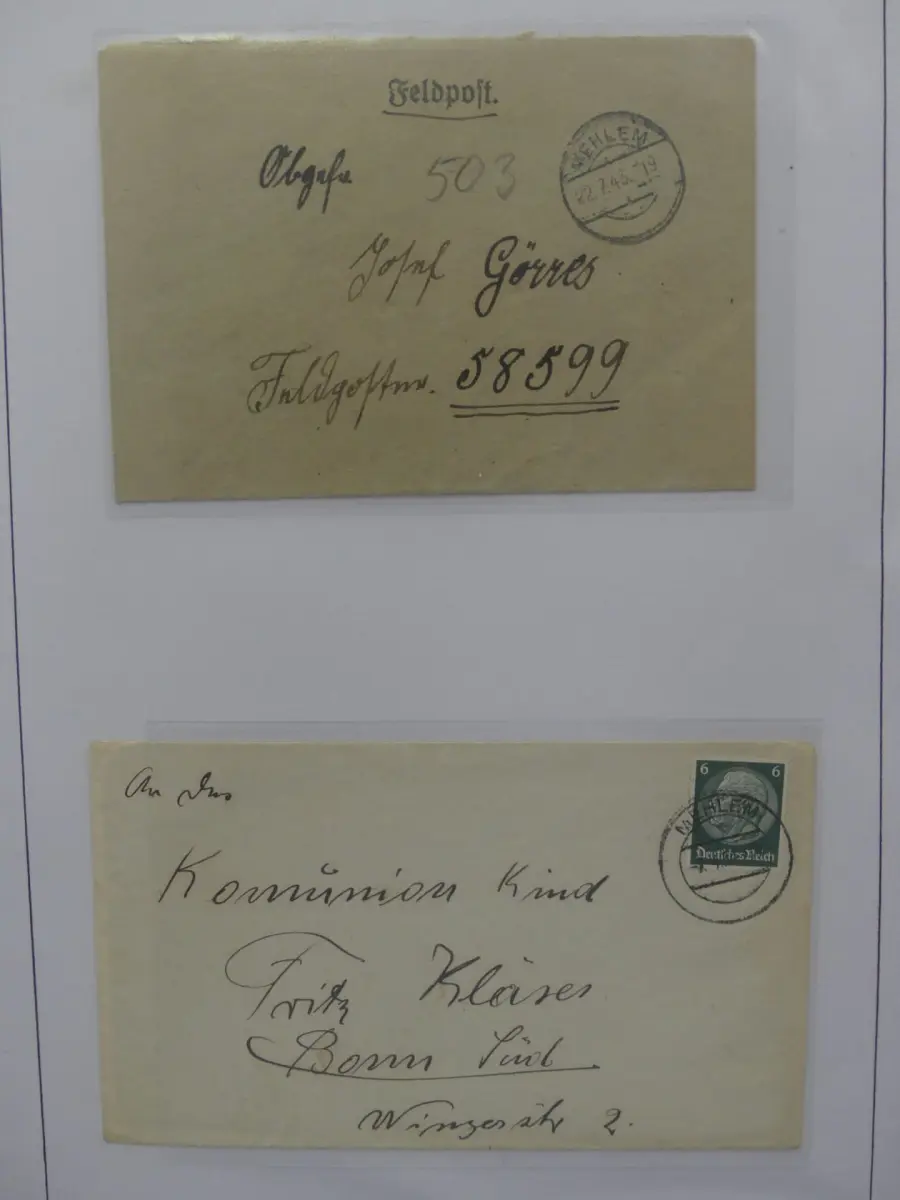 Feldpost.
Obgefr.
503
MEHLEM
22.7.43.-19
Josef Görres
Feldpostnr. 58599
An das
6 6
MEHLEM
Deutsches Reich
Komunion Kind
Fritz Kläser
Bonn Süd
Winzerstr 2.